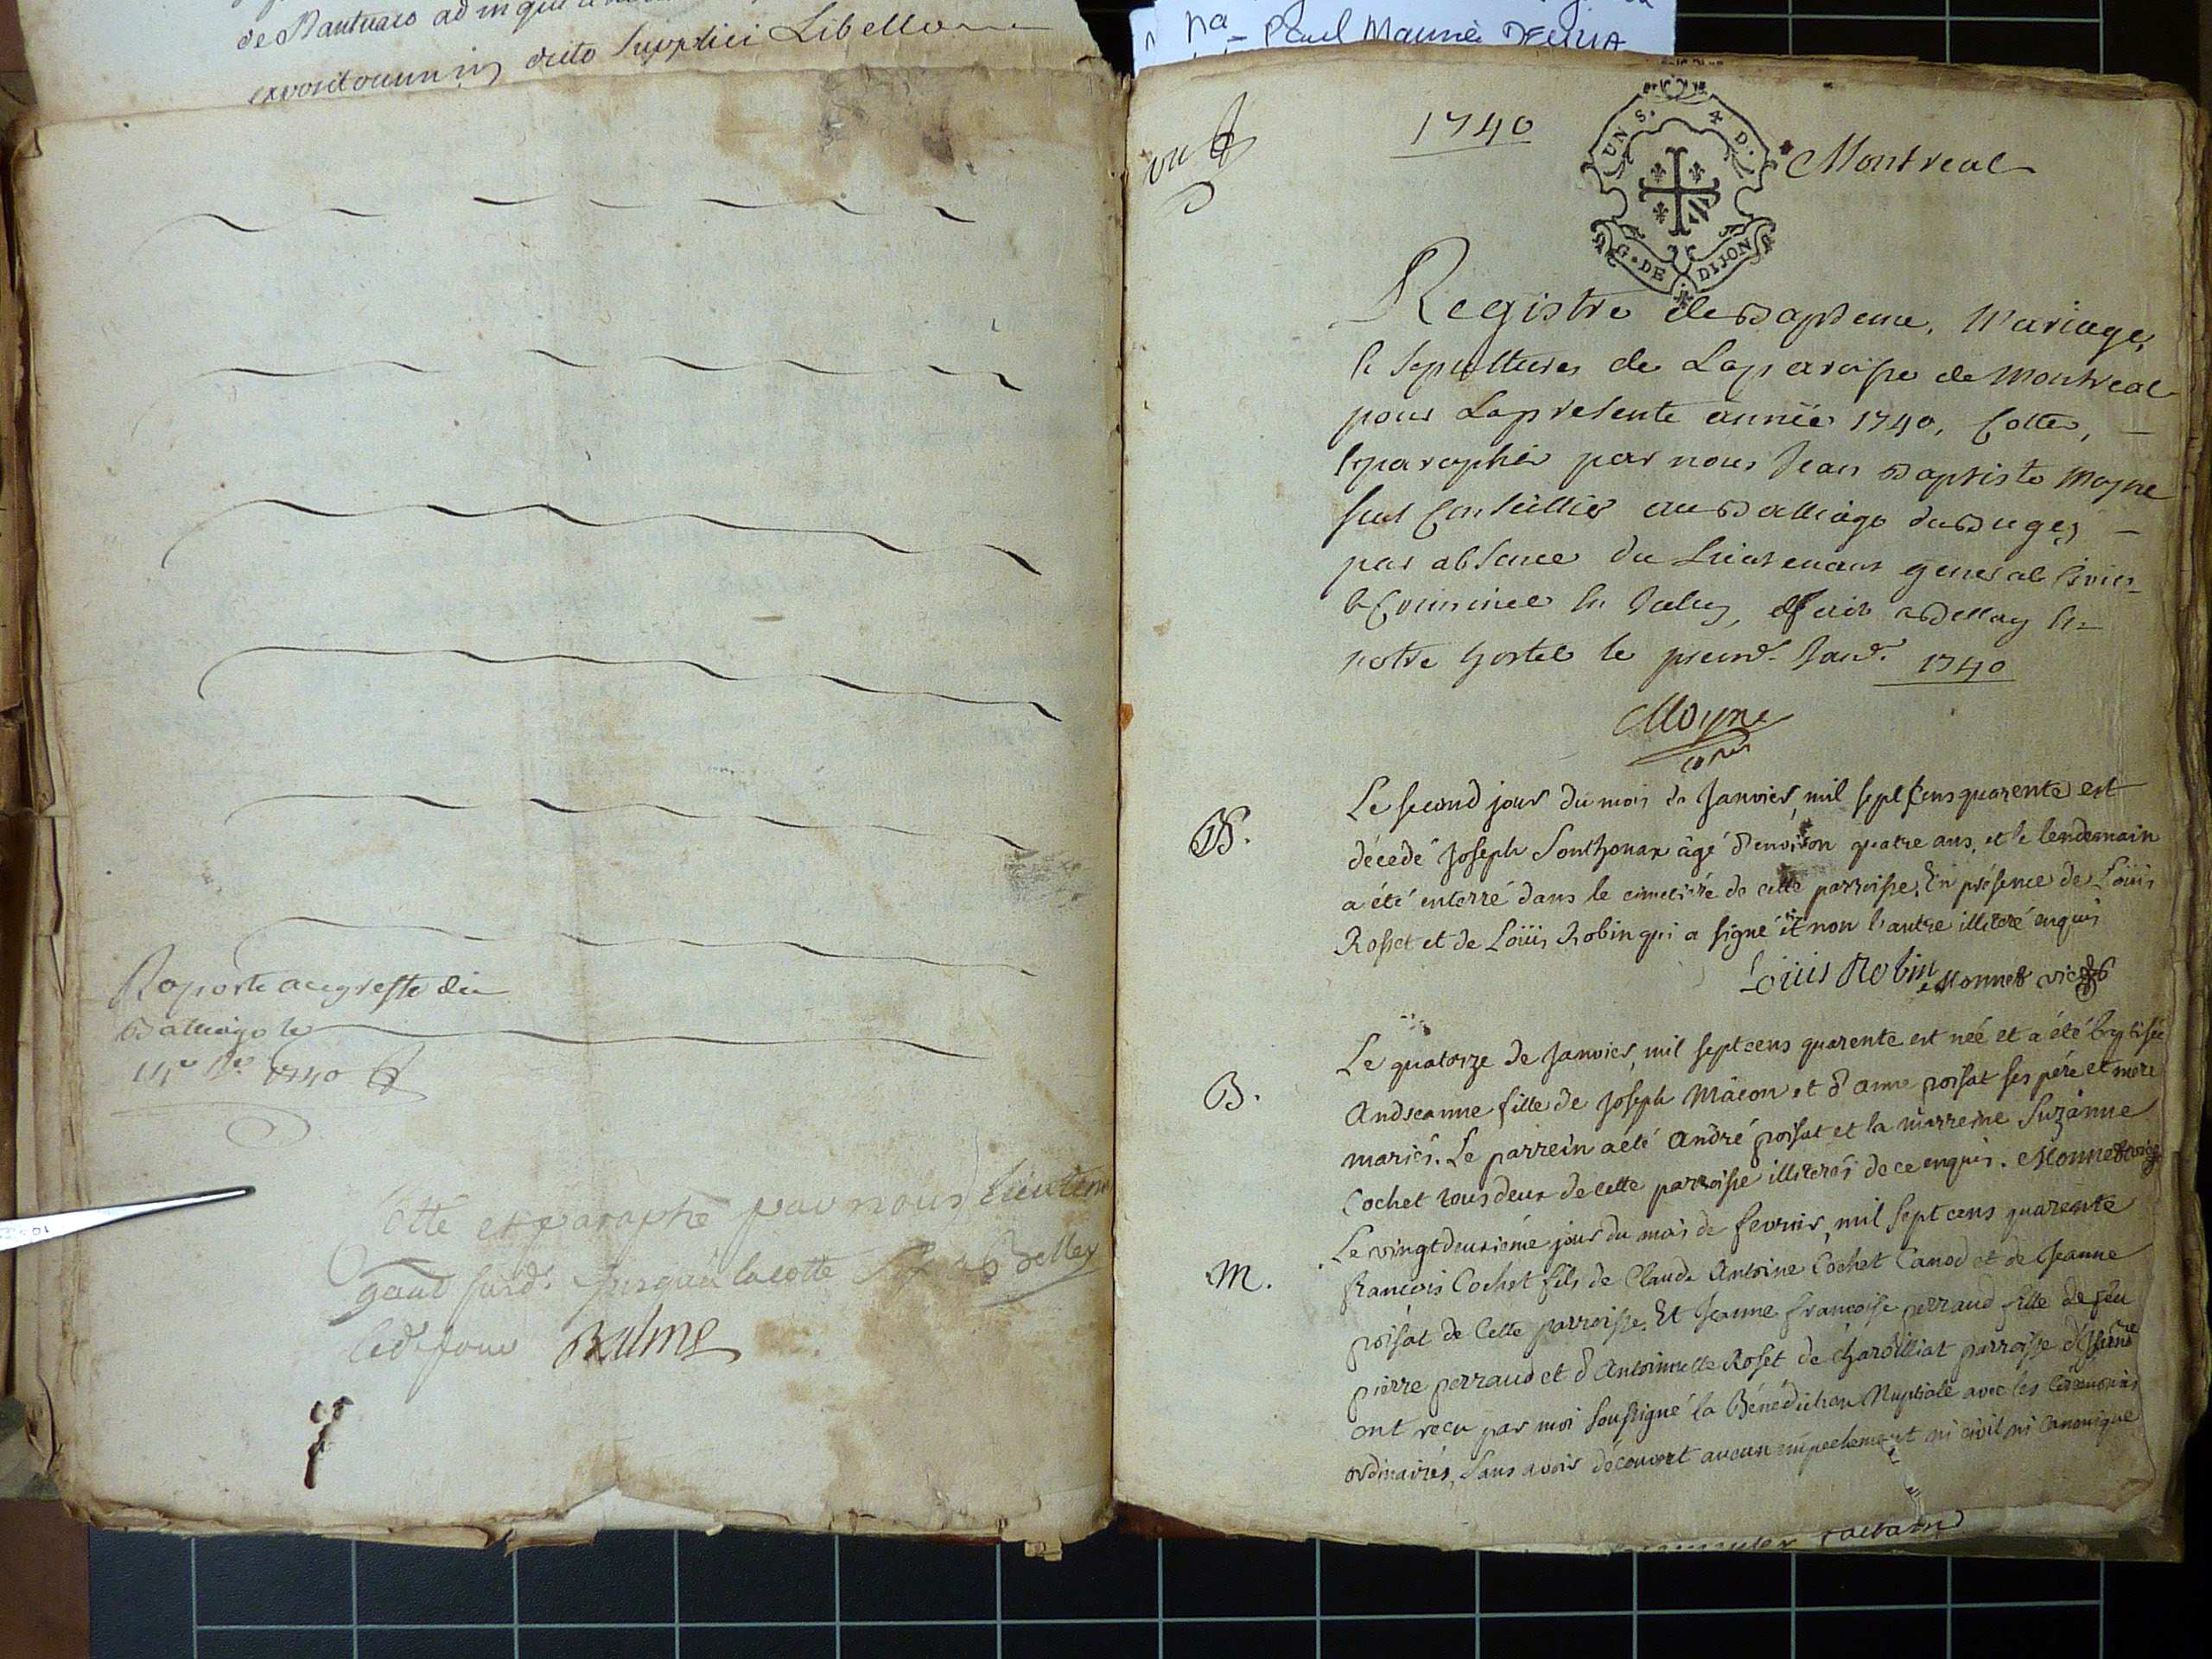 de Nantuaco ad in qui
expositorum in dicto supplici Libello
Raporte au greffe du
Balliage le
1740
Cotté et paraphé par nous lieuten
gend jusqu'à la cotte Belley
led. jour Balme
na = Paul Maurice
vu
1740
UN S. 4 D.
G. DE DIJON
Montreal
Registre de Bapteme, Mariage,
le sepultures de La paroisse de Montreal
pour La presente année 1740, Cotté,
le paraphé par nous Jean Baptiste Moyne
seul Conseiller au Balliage du Bugey
par absence du Lieutenant general Civil
& Criminel fait a Bellay En
notre hostel le premr. Janr. 1740
Moyne
Le second jour du mois de Janvier, mil sept Cens quarente est
S.
décedé Joseph Sonthonax âgé d'environ quatre ans, et le lendemain
a été enterré dans le cimetière de cette parroisse, En présence de Loüis
Rosset et de Loüis Robin qui a signé et non l'autre illiteré enquis
Loüis Robin Monnet vic
Le quatorze de Janvier, mil sept cens quarente est neé et a été baptisée
B.
Andreanne fille de Joseph Mâcon et d'anne poisat ses pére et mere
mariés. Le parrein a été André poisat et la marreine Suzanne
Cochet tous deux de cette parroisse illiterés de ce enquis. Monnet vic
Le vingtdeuxiéme jour du mois de fevrier, mil sept cens quarente
M.
françois Cochet fils de Claude Antoine Cochet Canod et de Jeanne
poisat de Cette parroisse, Et Jeanne françoise perraud fille de feu
pierre perraud et d'Antoinette Roset de Charvilliat parroisse
ont reçu par moi soussigné la Bénédiction Nuptiale avec les cérémonies
ordinaires, Sans avoir découvert aucun empechement ni civil ni Canonique